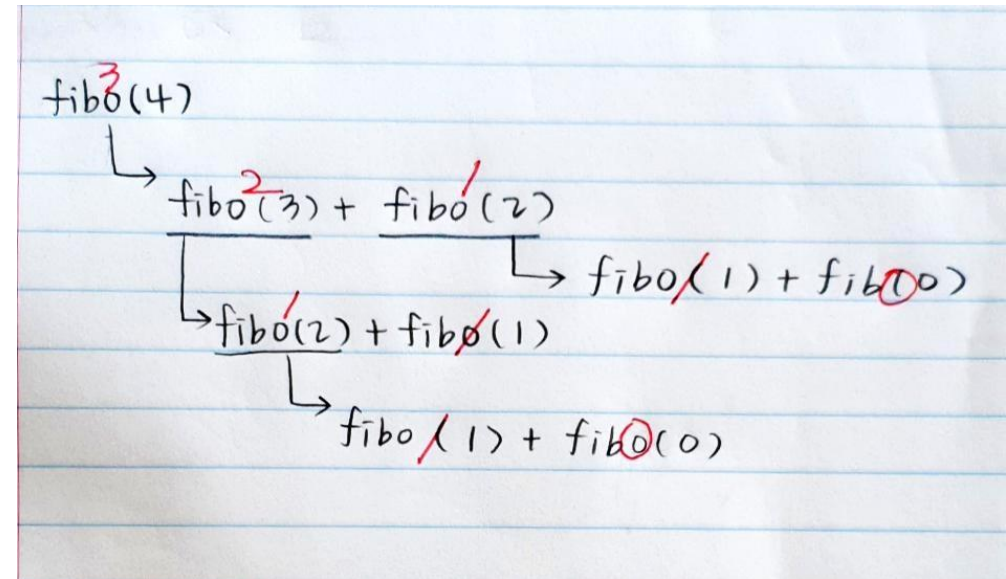 3
fibo(4)
2 1
fibo(3) + fibo(2)
1 0
fibo(1) + fibo(0)
1 1
fibo(2) + fibo(1)
1 0
fibo(1) + fibo(0)